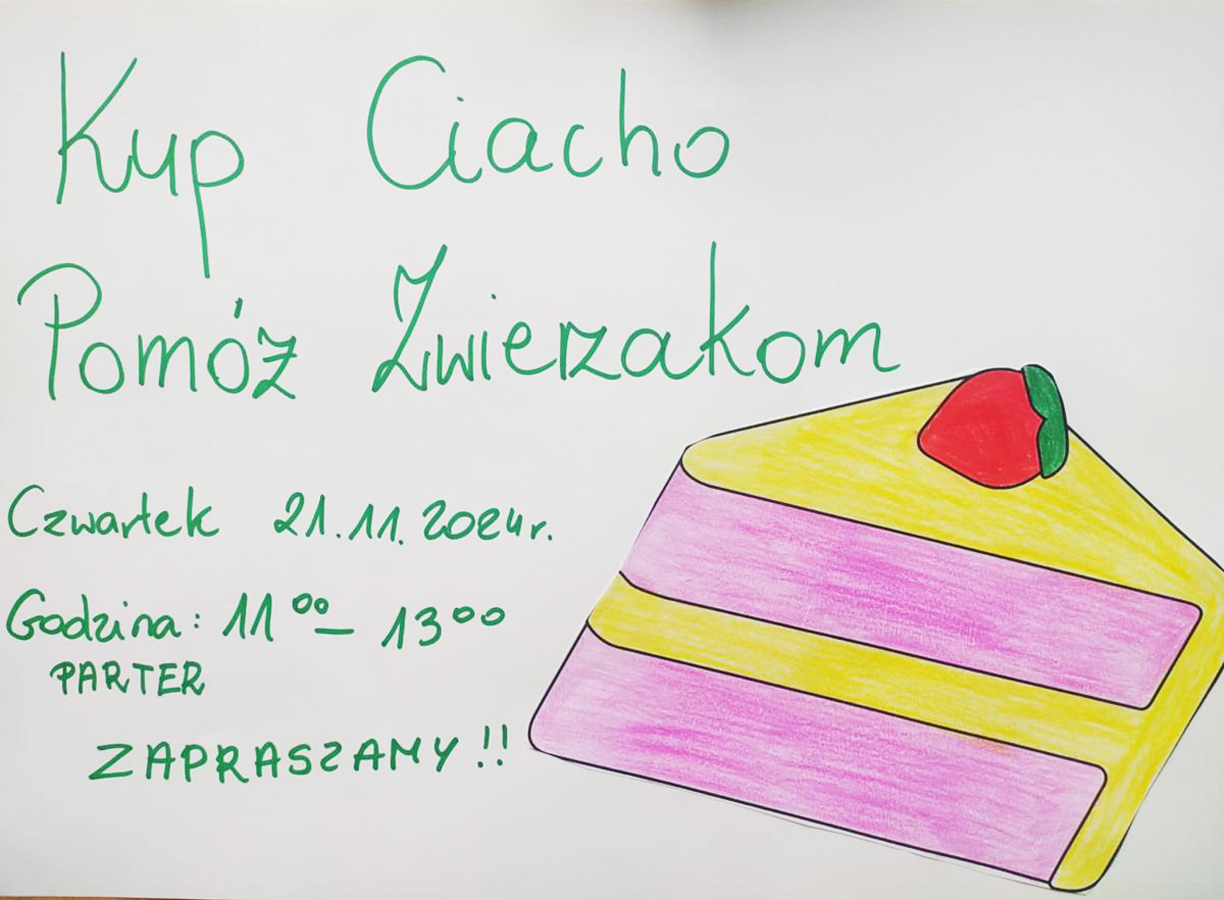 Kup Ciacho
Pomóż Zwierzakom
Czwartek 21.11.2024r.
Godzina: 11⁰⁰ – 13⁰⁰
PARTER
ZAPRASZAMY!!